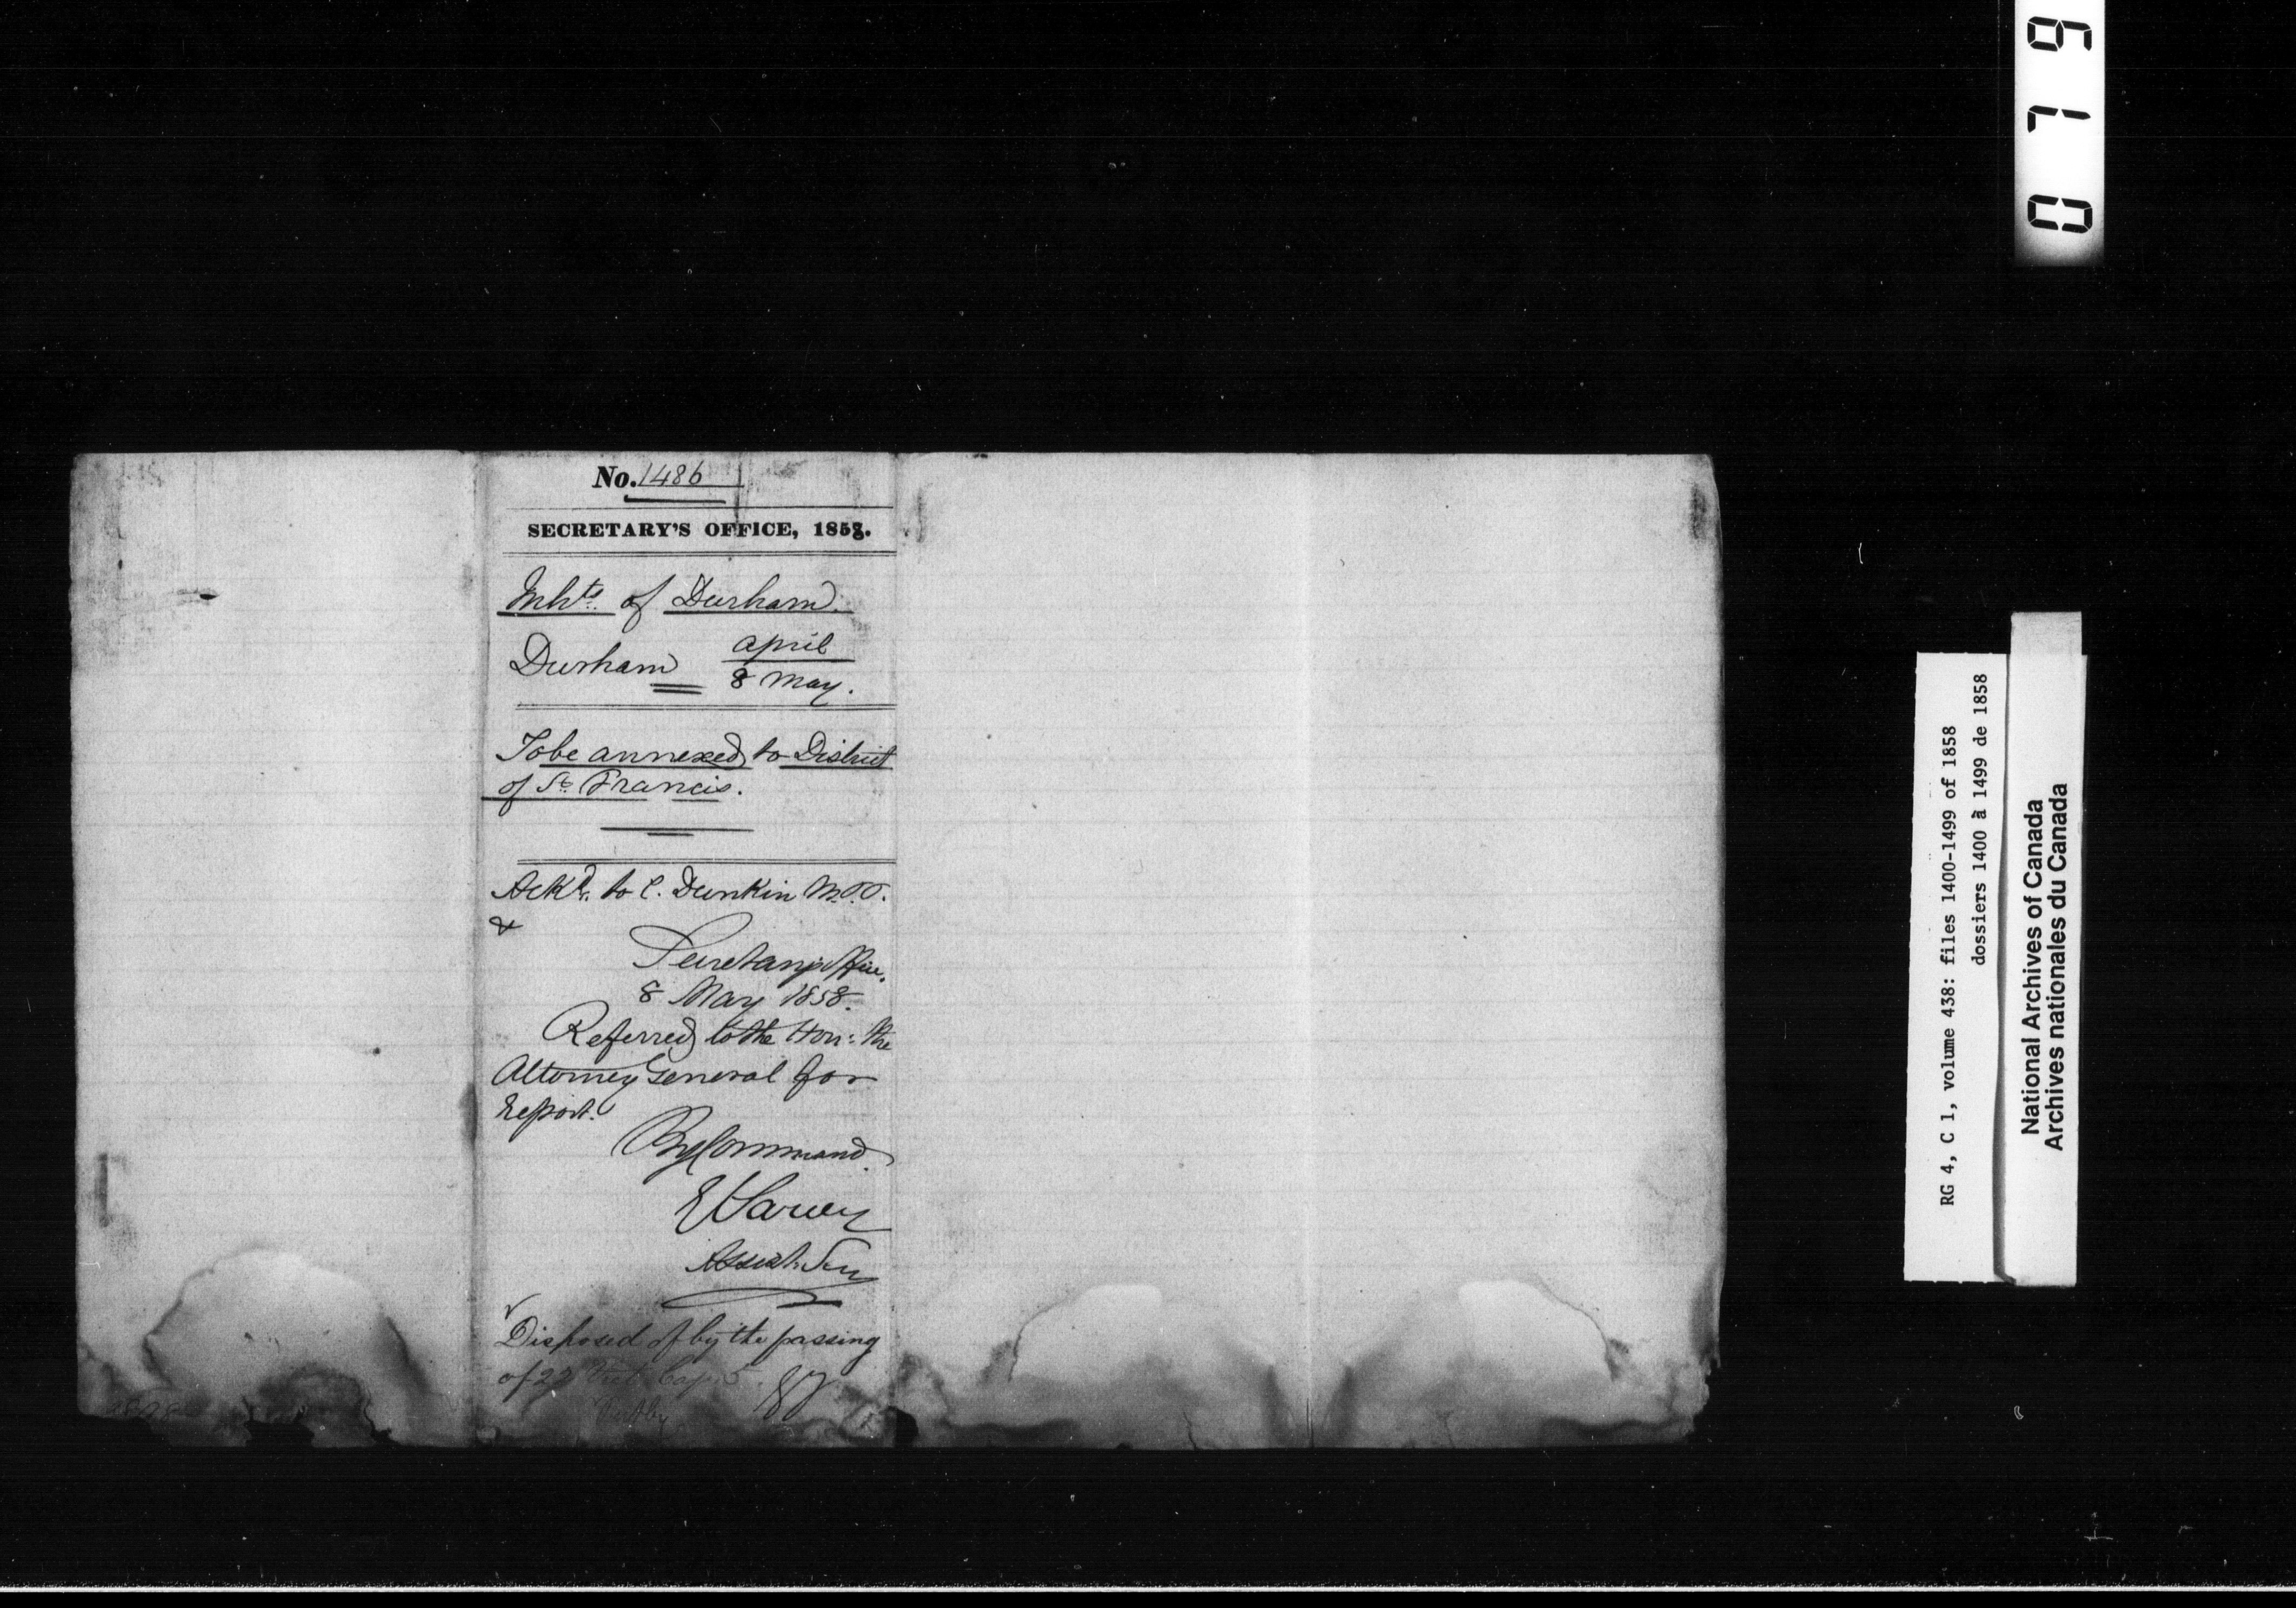 No. 1486
SECRETARY'S OFFICE, 1858.
Inhts. of Durham.
Durham April
8 May.
To be annexed to District
of St. Francis.
Ackd. to C. Dunkin M.P.P.
&
Secretary's Office,
8 May 1858.
Referred to the Hon: the
Attorney General for
report.
By Command.
E Parent
Assist. Secy
Disposed of by the passing
of 22 Vict. Cap. 5.
0719
RG 4, C 1, volume 438: files 1400-1499 of 1858
dossiers 1400 à 1499 de 1858
National Archives of Canada
Archives nationales du Canada